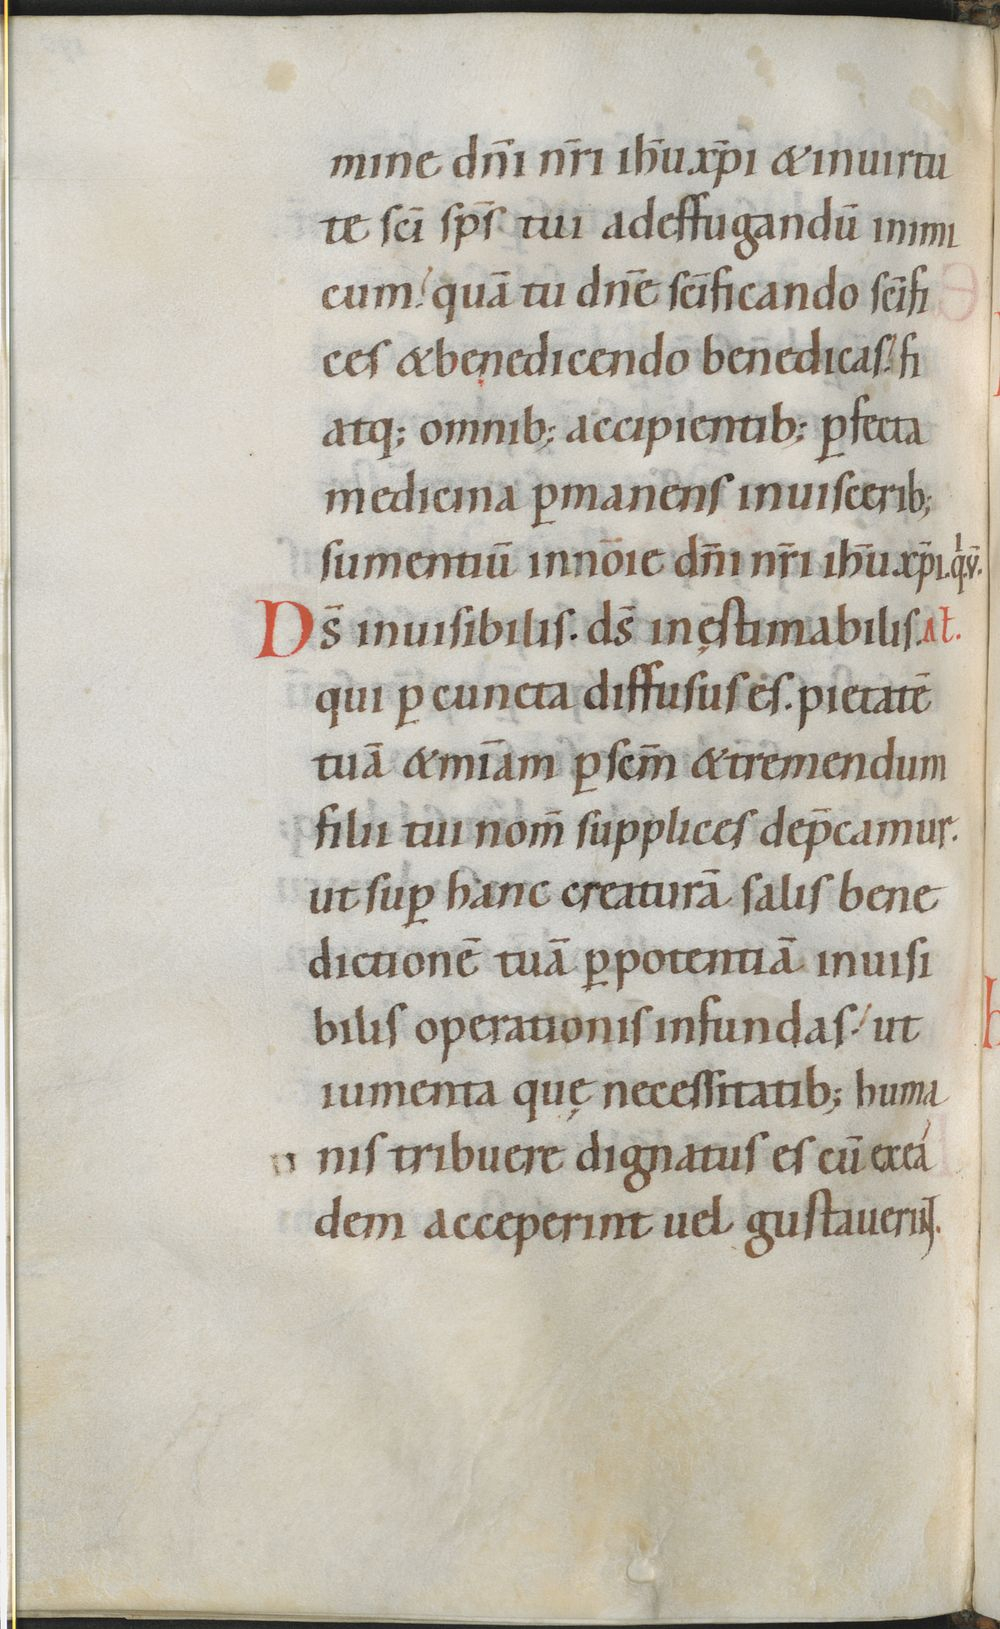 mine dn̄i nr̄i ih̄u xp̄i & inuirtu
te sc̄i sp̄s tui adeffugandū inimi
cum. quā tu dn̄e sc̄ificando sc̄ifi
ces & benedicendo benedicas. fi
atq; omnib; accipientib; ꝑfecta
medicina ꝑmanens inuiscerib;
sumentiū innōie dn̄i nr̄i ih̄u xp̄i. q̍. v̄.
Ds̄ inuisibilis. ds̄ inęstimabilis. At.
qui ꝑ cuncta diffusus es. pietatē
tuā & mīam ꝑ sem̄ & tremendum
filii tui nom̄ supplices dep̄camur.
ut suꝑ hanc creaturā salis bene
dictionē tuā ꝑ potentiā inuisi
bilis operationis infundas. ut
iumenta quę necessitatib; huma
nis tribuere dignatus es cū exea
dem acceperint uel gustauerint.